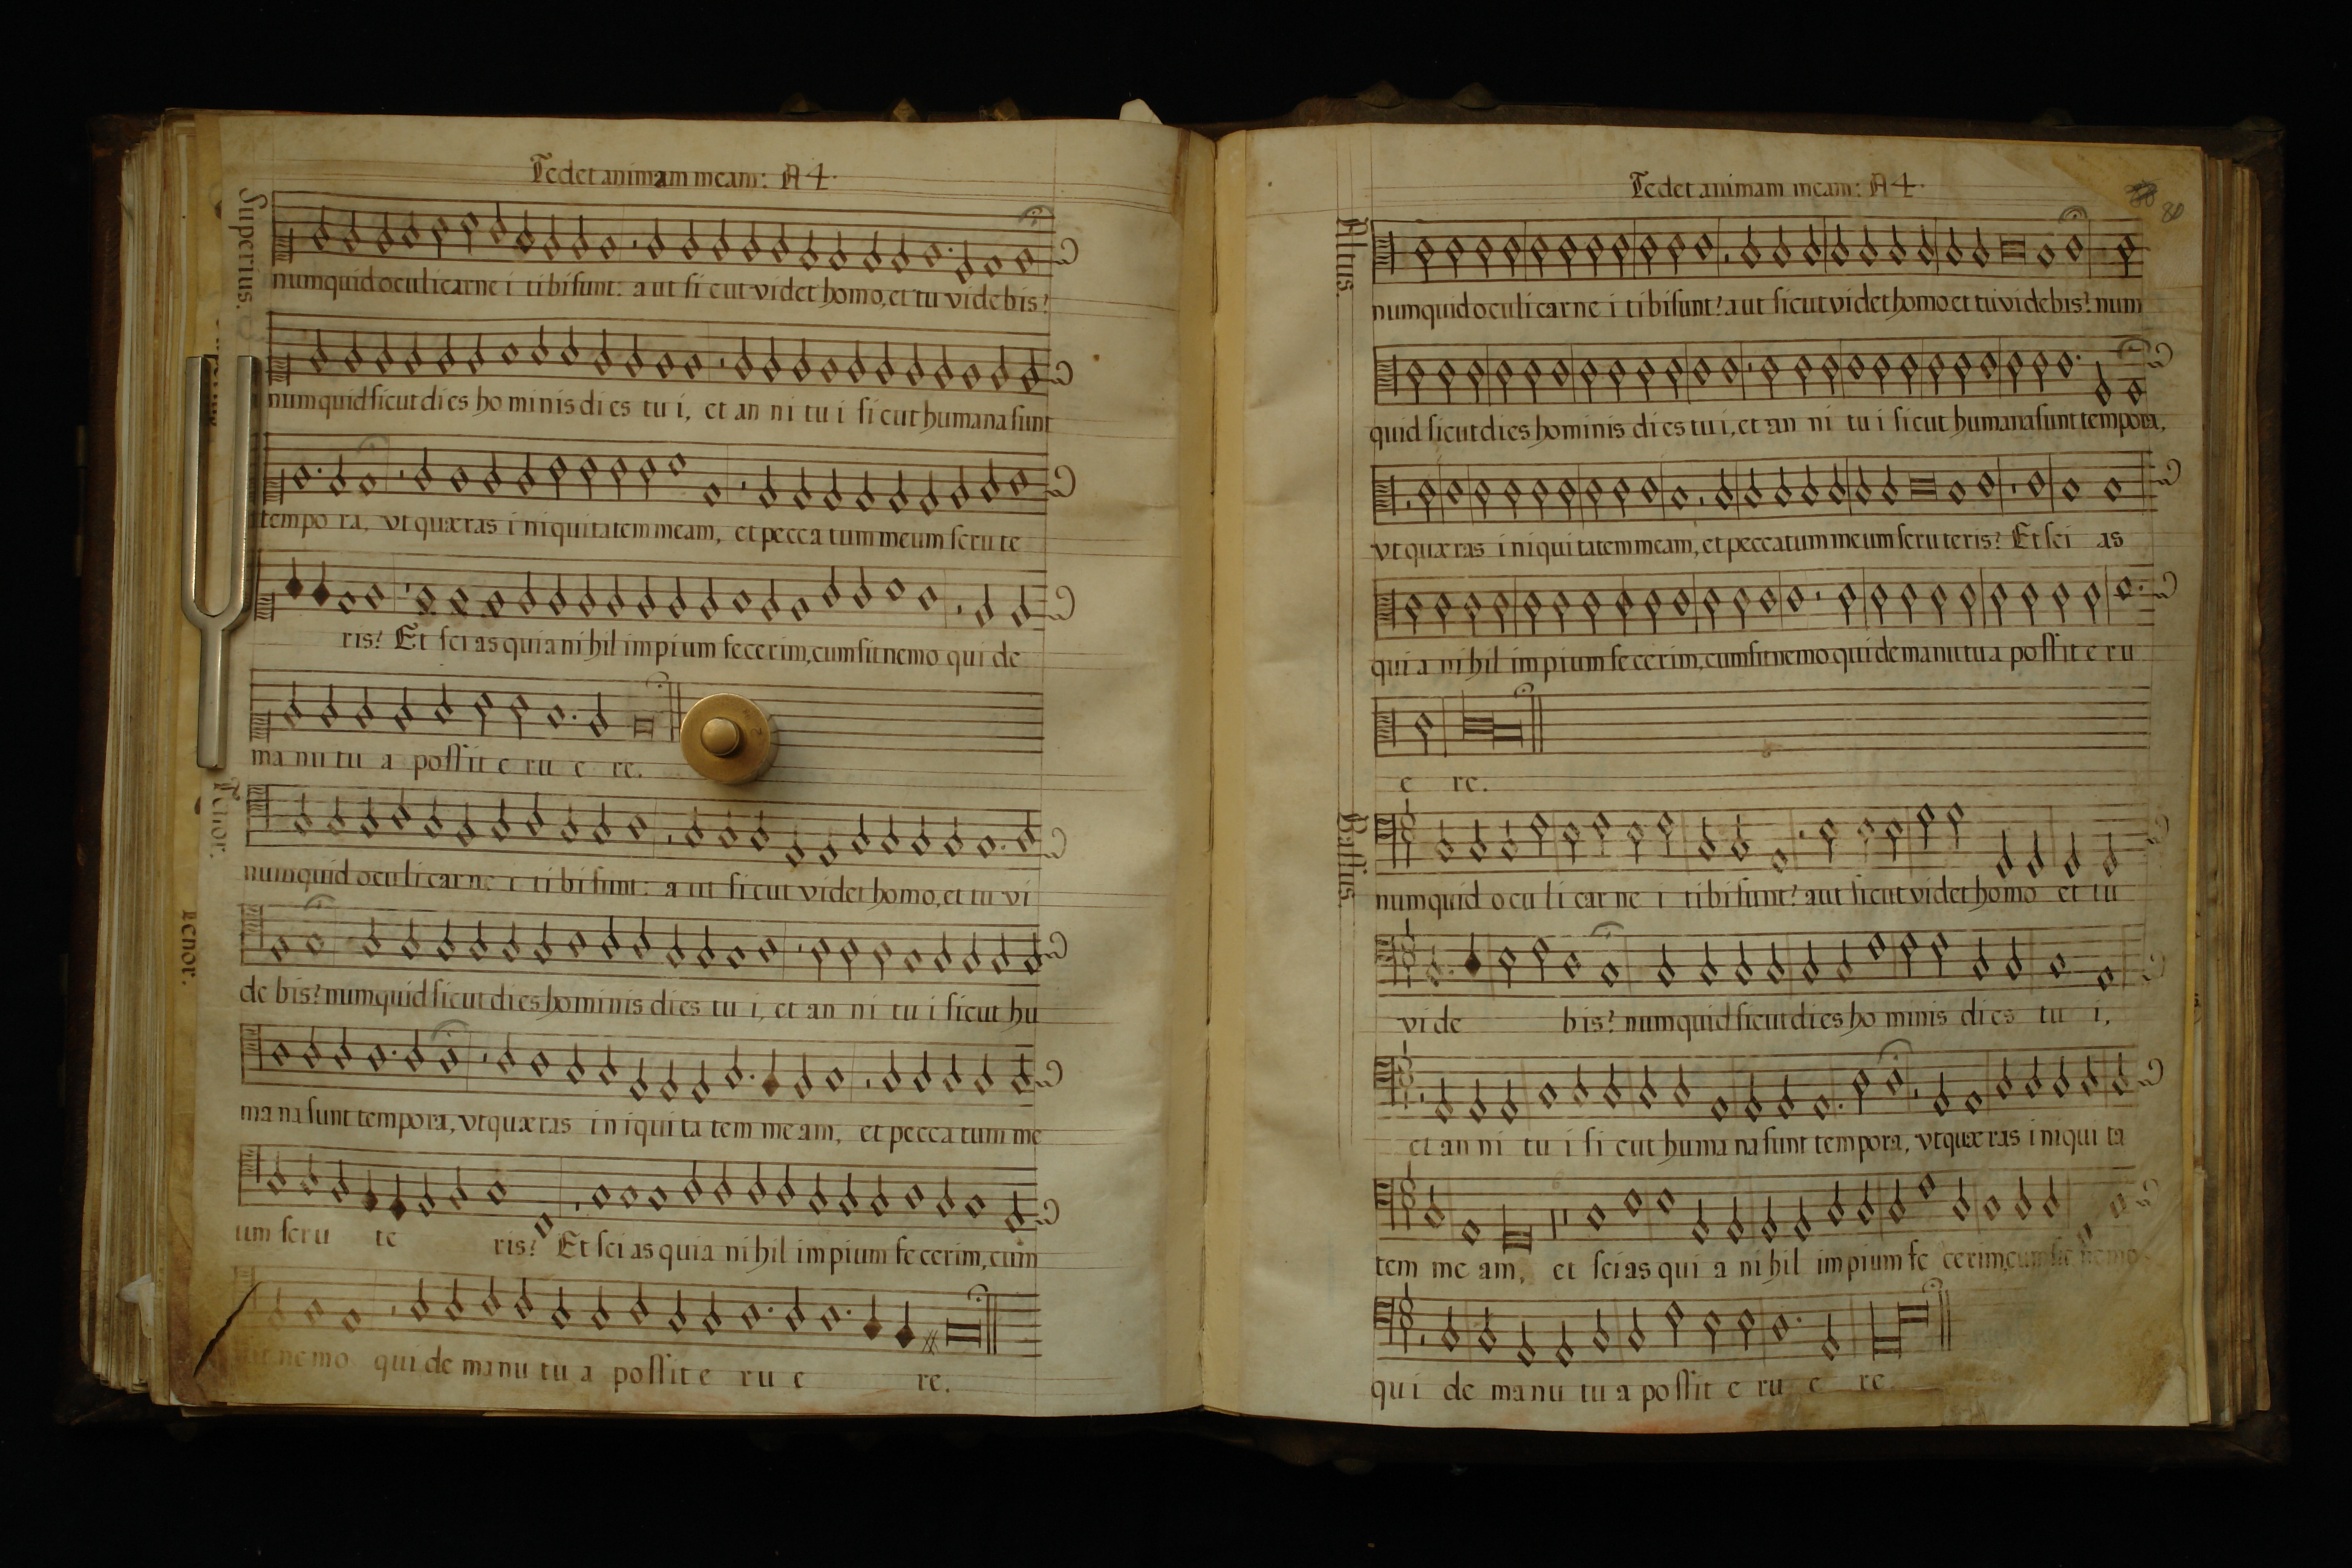 Tedet animam meam: A 4.
Superius.
numquid oculi carne i tibi sunt: aut si cut videt homo, et tu videbis?
numquid sicut di es ho minis di es tu i, et an ni tu i si cut humana sunt
tempo ra, vt quæras i niquitatem meam, et pecca tum meum scru te
ris? Et sci as quia ni hil impium fecerim, cum sit nemo qui de
ma nu tu a possit e ru e re.
Tenor.
numquid oculi car ne i ti bi sunt: a ut si cut videt homo, et tu vi
de bis? numquid sicut di es hominis di es tu i, et an ni tu i sicut hu
Tenor.
ma na sunt tempora, vt quæras in iqui ta tem me am, et pecca tum me
um scru te ris? Et sci as quia ni hil impium fe cerim, cum
nemo qui de manu tu a possit e ru e re.
Tedet animam meam: A 4.
80
Altus.
numquid oculi carne i ti bi sunt? aut sicut videt homo et tu videbis? num
quid sicut di es hominis di es tu i, et an ni tu i si cut humana sunt tempora,
vt quæras i niqui tatem meam, et peccatum meum scru teris? Et sci as
qui a ni hil impium fe cerim, cum sit nemo qui de manu tu a possit e ru
e re.
Bassus.
numquid o cu li car ne i ti bi sunt? aut sicut videt homo et tu
vi de bis? numquid sicut di es ho minis di es tu i,
et an ni tu i si cut huma na sunt tempora, vt quæ ras i niqui ta
tem me am, et sci as qui a ni hil impium fe cerim, cum sit nemo
qui de manu tu a possit e ru e re